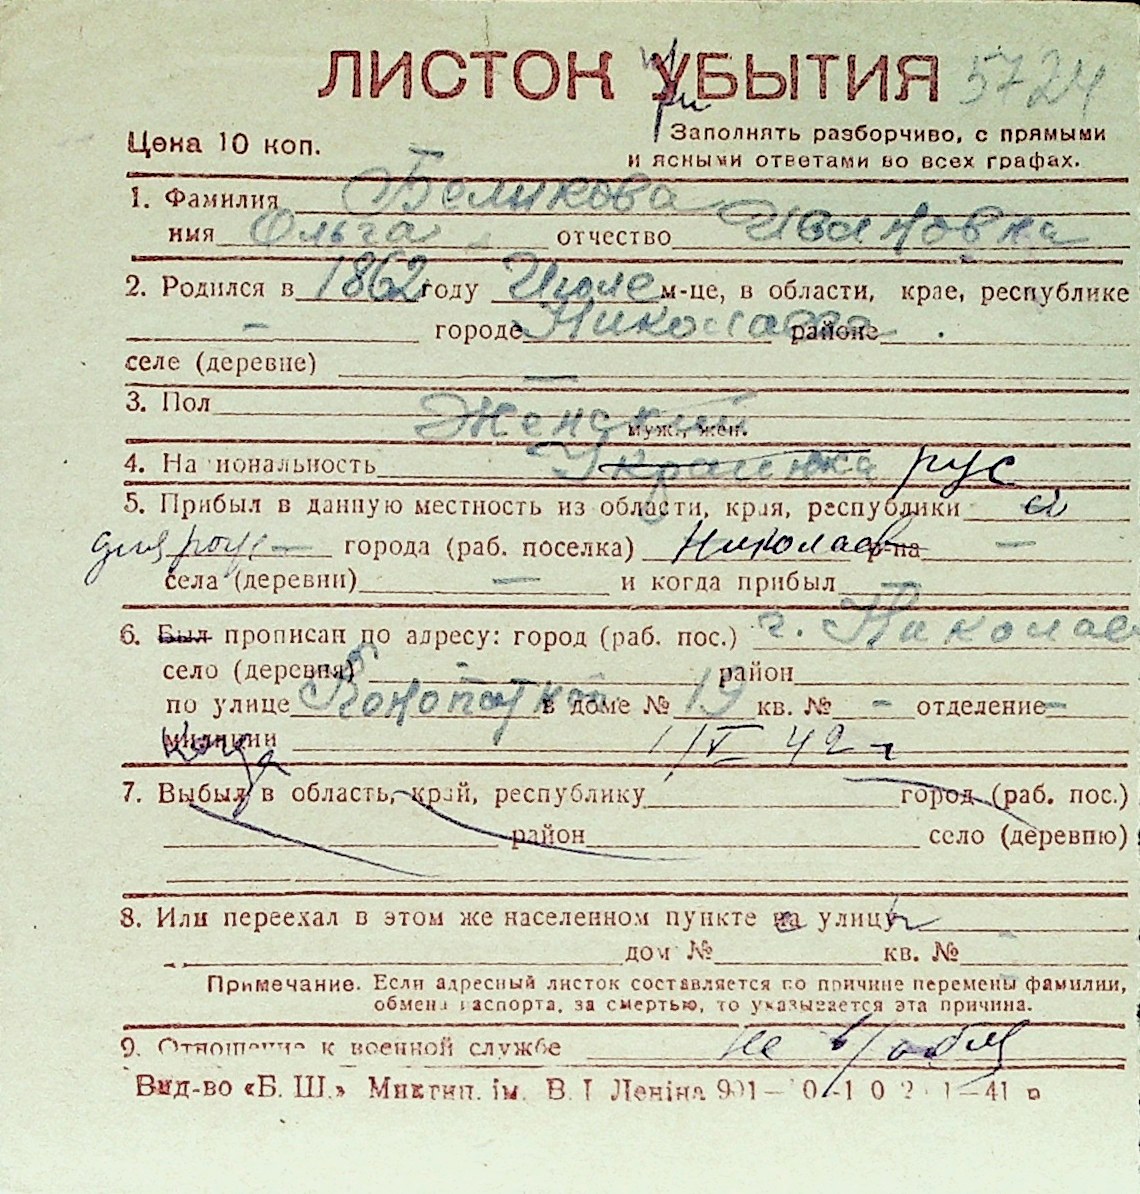 ЛИСТОК УБЫТИЯ 5724
при
Цена 10 коп. Заполнять разборчиво, с прямыми
и ясными ответами во всех графах.
1. Фамилия Беликова
имя Ольга отчество Ивановна
2. Родился в 1862 году Июле м-це, в области, крае, республике
- городе Николаеве районе
селе (деревне) —
3. Пол Женский
муж., жен.
4. Национальность Украинка рус
5. Прибыл в данную местность из области, края, республики
— города (раб. поселка) Николаев р-на —
села (деревни) — и когда прибыл —
6. Был прописан по адресу: город (раб. пос.) г. Николаев
село (деревня) - район
по улице в доме № 19 кв. № - отделение -
милиции 1/V 42 г
когда
7. Выбыл в область, край, республику город (раб. пос.)
район село (деревню)
8. Или переехал в этом же населенном пункте на улицу
дом № кв. №
Примечание. Если адресный листок составляется по причине перемены фамилии,
обмена паспорта, за смертью, то указывается эта причина.
9. Отношение к военной службе не в/обяз
Вид-во «Б. Ш.» Миктип. ім. В. І Леніна